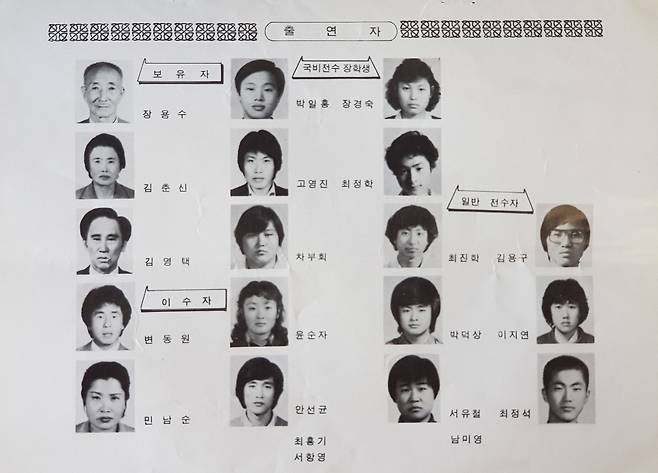 출 연 자
보 유 자
장 용 수
김 춘 신
김 영 택
이 수 자
변 동 원
민 남 순
국비전수 장학생
박일흥 장경숙
고영진 최정학
차부회
윤순자
안선균
최흥기
서항영
일반 전수자
최진학 김용구
박덕상 이지연
서유철 최정석
남미영